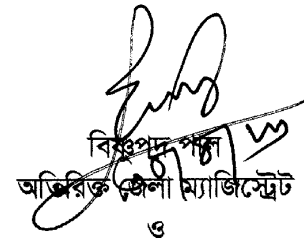 বিষ্ণুপদ পাল
অতিরিক্ত জেলা ম্যাজিস্ট্রেট
ও